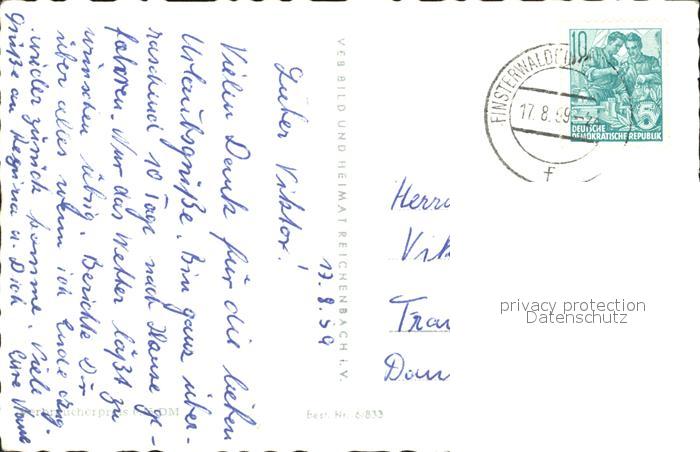 17.8.59
Lieber Viktor!
Vielen Dank für die lieben
Urlaubsgrüße. Bin ganz über-
raschend 10 Tage nach Hause ge-
fahren. Nur das Wetter läßt zu
wünschen übrig. Berichte Dir
über alles wenn ich Ende Aug.
wieder zurück komme. Viele
Grüße an Regina u. Dich Eure
VEB BILD UND HEIMAT REICHENBACH i. V.
Verbraucherpreis DM
Best. Nr. 6/833
FINSTERWALDE
17. 8. 59
f
10
5
DEUTSCHE
DEMOKRATISCHE REPUBLIK
Herrn
Vik
Trau
privacy protection
Datenschutz